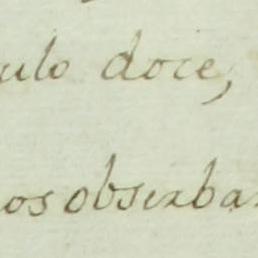 ulo doce,
os obserba